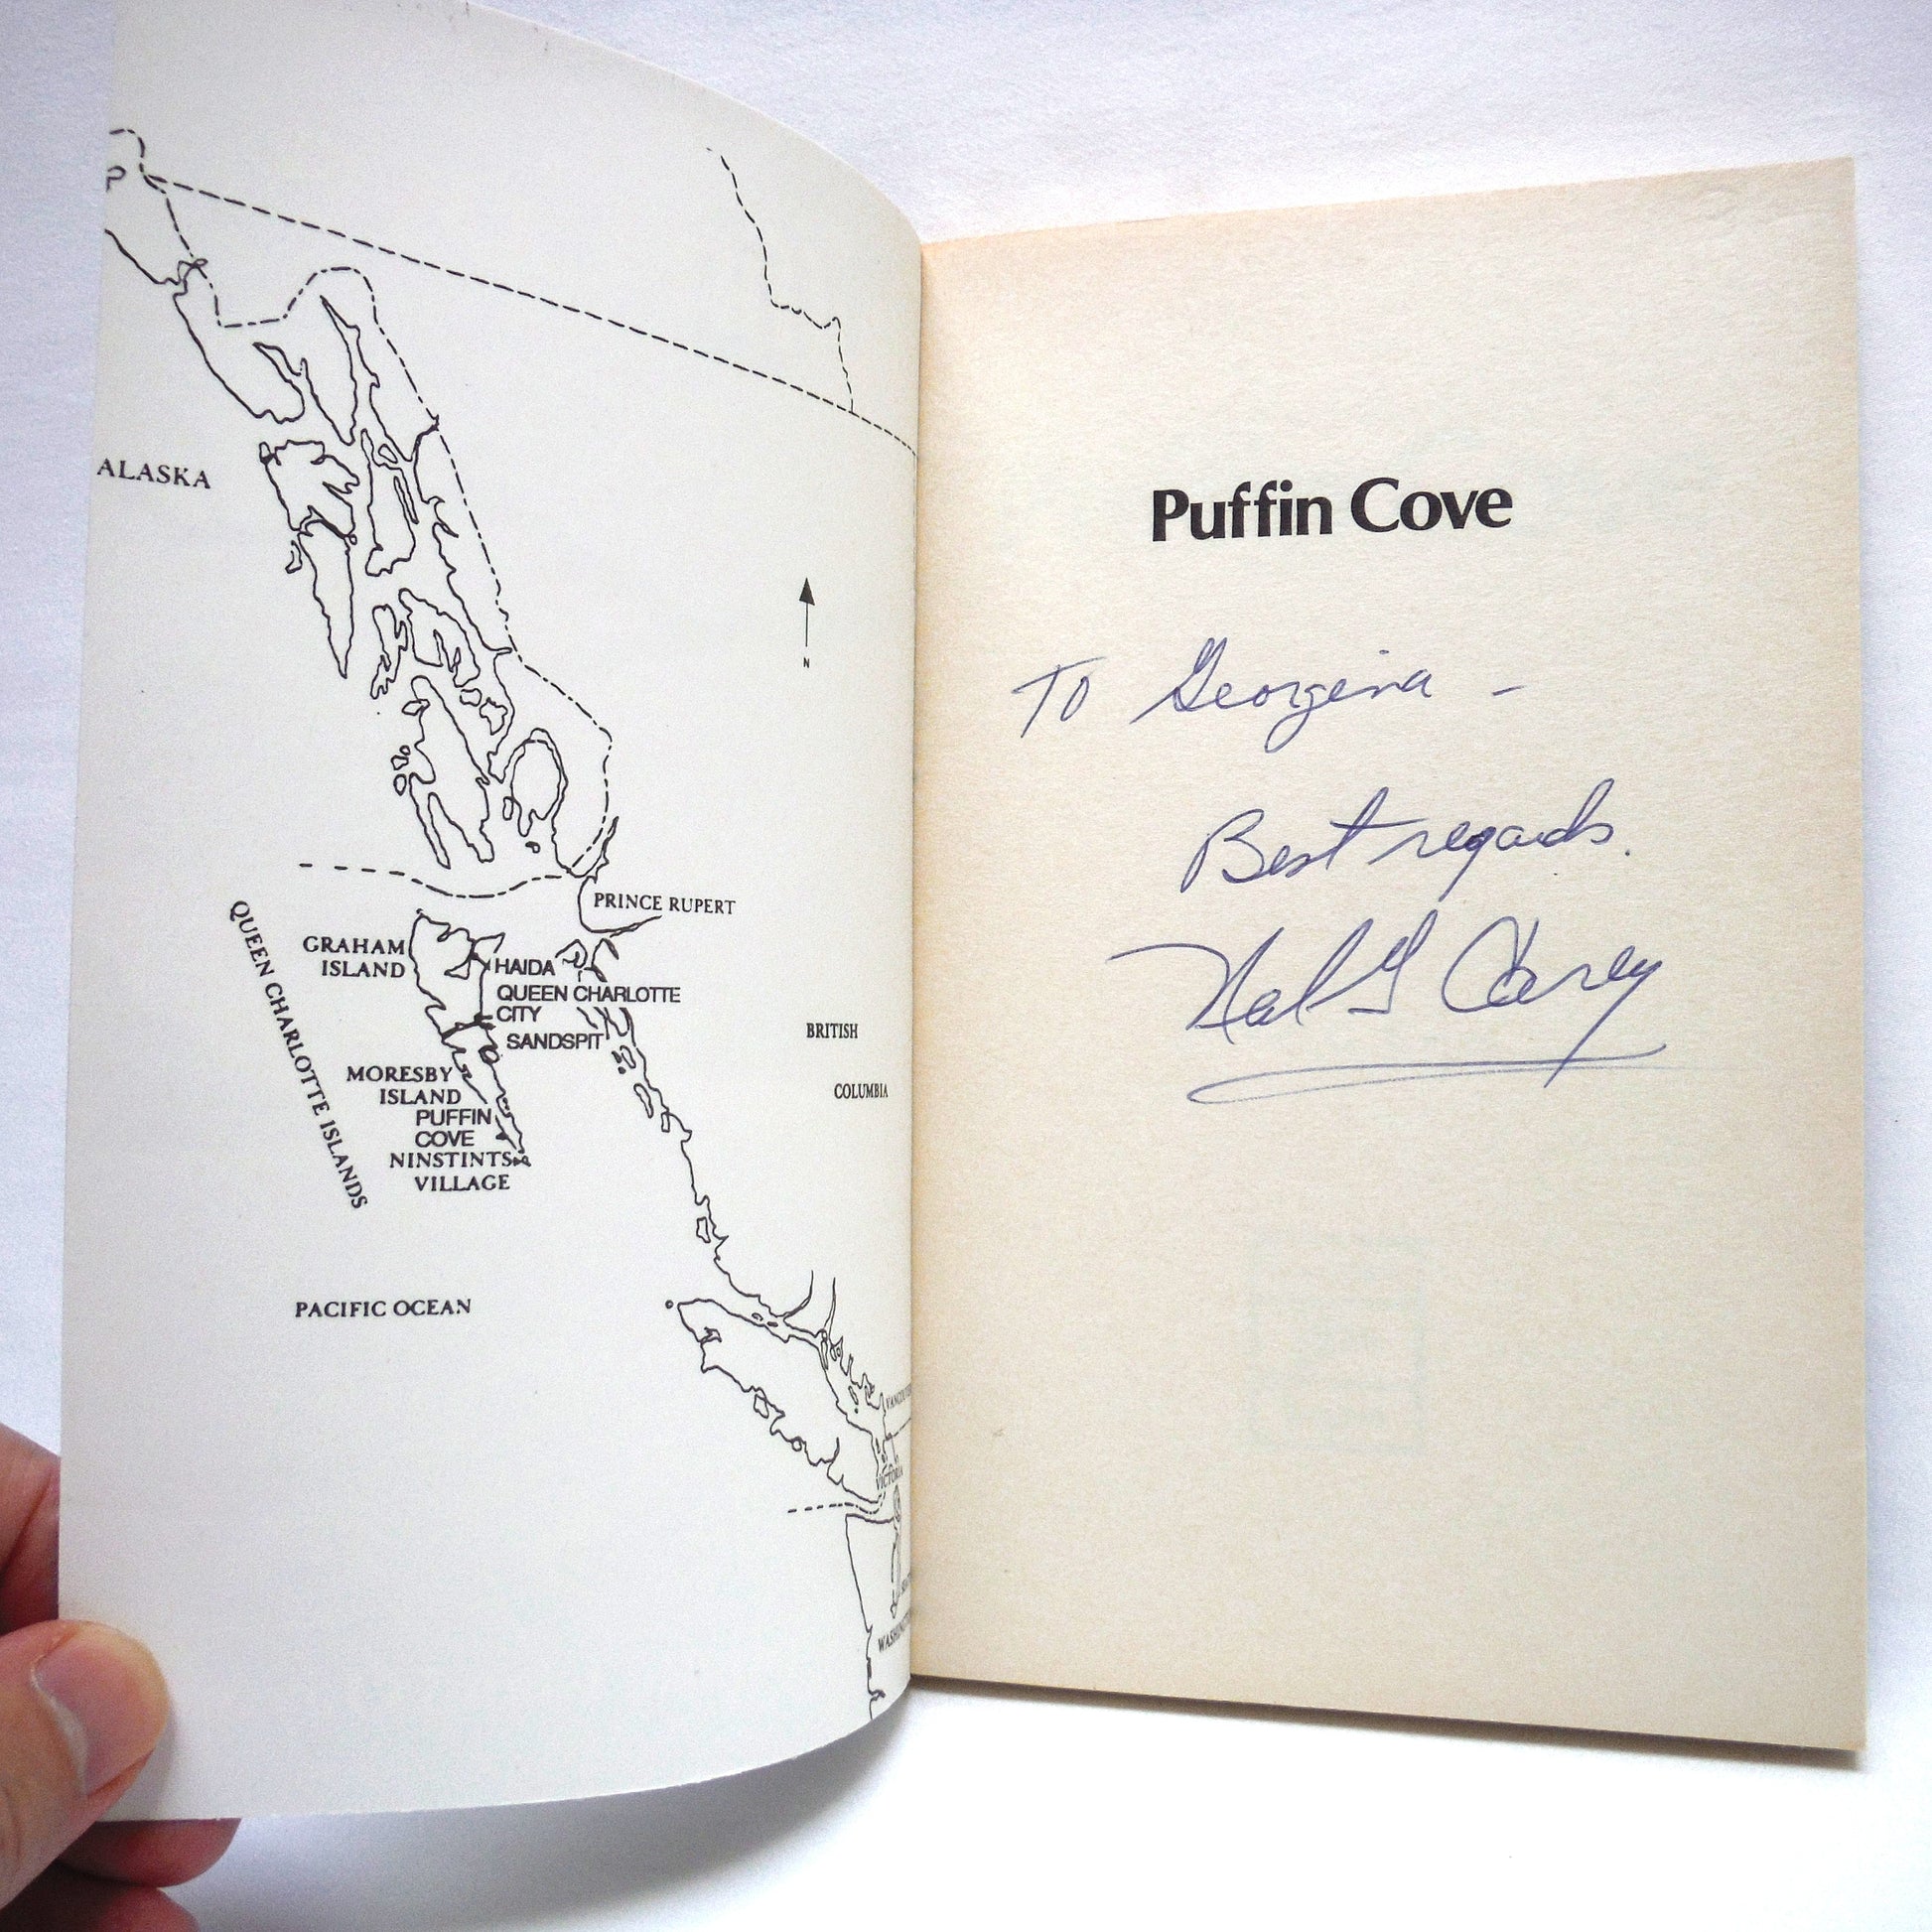 ALASKA
N
PRINCE RUPERT
QUEEN CHARLOTTE ISLANDS
GRAHAM
ISLAND
HAIDA
QUEEN CHARLOTTE
CITY
SANDSPIT
BRITISH
COLUMBIA
MORESBY
ISLAND
PUFFIN
COVE
NINSTINTS
VILLAGE
PACIFIC OCEAN
VICTORIA
Puffin Cove
To Georgina -
Best regards.
Neil G Carey